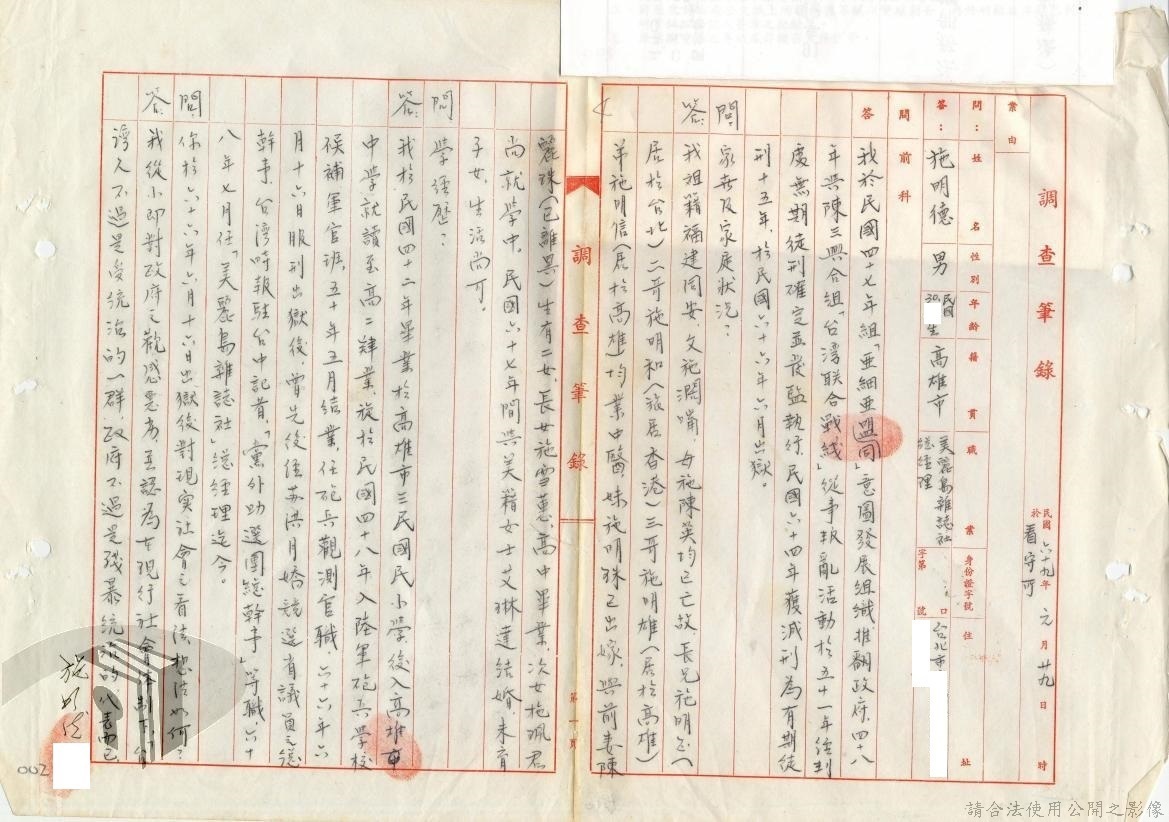 調查筆錄
民國六十九年元月廿九日 時
於看守所
案由
問：姓名 性別 年齡 籍貫 職業 身份證字號 住址
答：施明德 男 民國30. 生 高雄市 美麗島雜誌社總經理 字第 號 台北市
問 前科
答 我於民國四十七年組「亜細亜盟同」意圖發展組織推翻政府，四十八
年與陳三興合組「台湾联合戰线」從事叛亂活動於五十一年經判
處無期徒刑確定並發監執行，民國六十四年獲減刑為有期徒
刑十五年，於民國六十六年六月出獄。
問：家世及家庭狀況？
答：我祖籍福建同安，父施濶嘴，母施陳英均已亡故，長兄施明正（
居於台北）二哥施明和（旅居香港）三哥施明雄（居於高雄）
弟施明信（居於高雄）均業中醫，妹施明珠已出嫁，與前妻陳
調查筆錄
第一頁
麗珠（已離異）生有二女，長女施雪蕙，高中畢業，次女施珮君
尚就學中，民國六十七年間與美籍女士艾琳達結婚，未育
子女，生活尚可。
問：學經歷？
答：我於民國四十二年畢業於高雄市三民國民小學，後入高雄市
中學就讀至高二肄業，旋於民國四十八年入陸軍砲兵學校
候補軍官班，五十年五月結業，任砲兵觀測官職，六十六年六
月十六日服刑出獄後，曾先後任蘇洪月嬌競選省議員之總
幹事，台湾時報駐台中記者，「黨外助選團總幹事」等職，六十
八年七月任「美麗島雜誌社」總經理迄今。
問：你於六十六年六月十六日出獄後對現实社會之看法想法如何？
答：我從小即對政府之觀感惡劣，並認為在現行社會体制下，台
湾人不過是受統治的一群，政府不過是殘暴統治的代表而已
施明德
002
請合法使用公開之影像